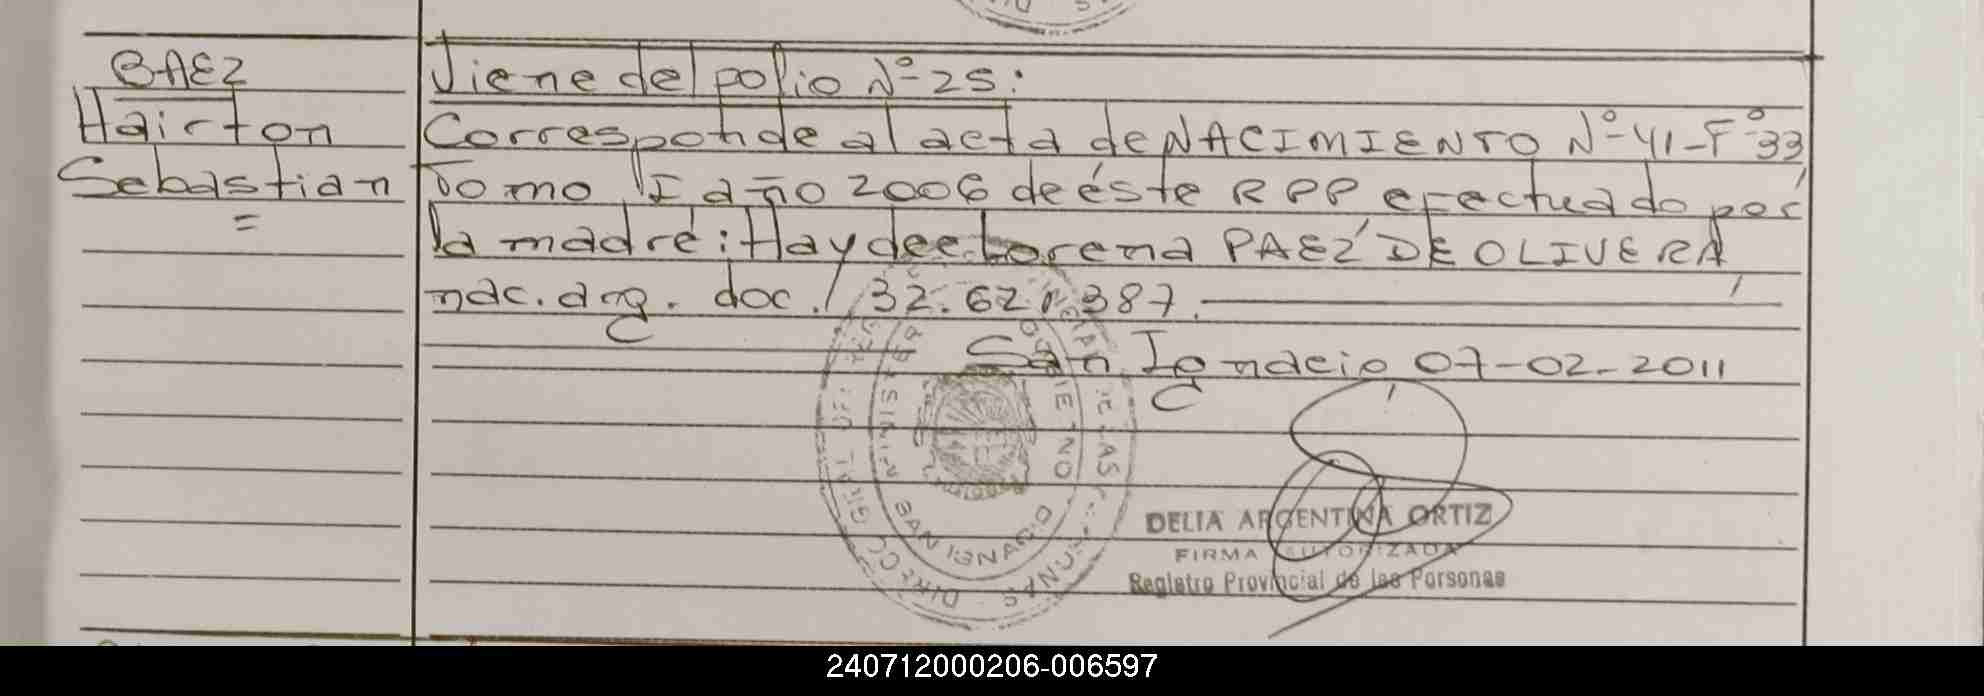 BAEZ
Hairton
Sebastian
=
Viene del folio Nº 25:
Corresponde al acta de NACIMIENTO Nº 41-Fº 33
Tomo I año 2006 de éste RPP efectuado por
la madre: Haydee Lorena PAEZ DE OLIVERA,
nac. arg. doc./ 32.621.387.
San Ignacio 07-02-2011
SAN IGNACIO
DELIA ARGENTINA ORTIZ
FIRMA AUTORIZADA
Registro Provincial de las Personas
240712000206-006597